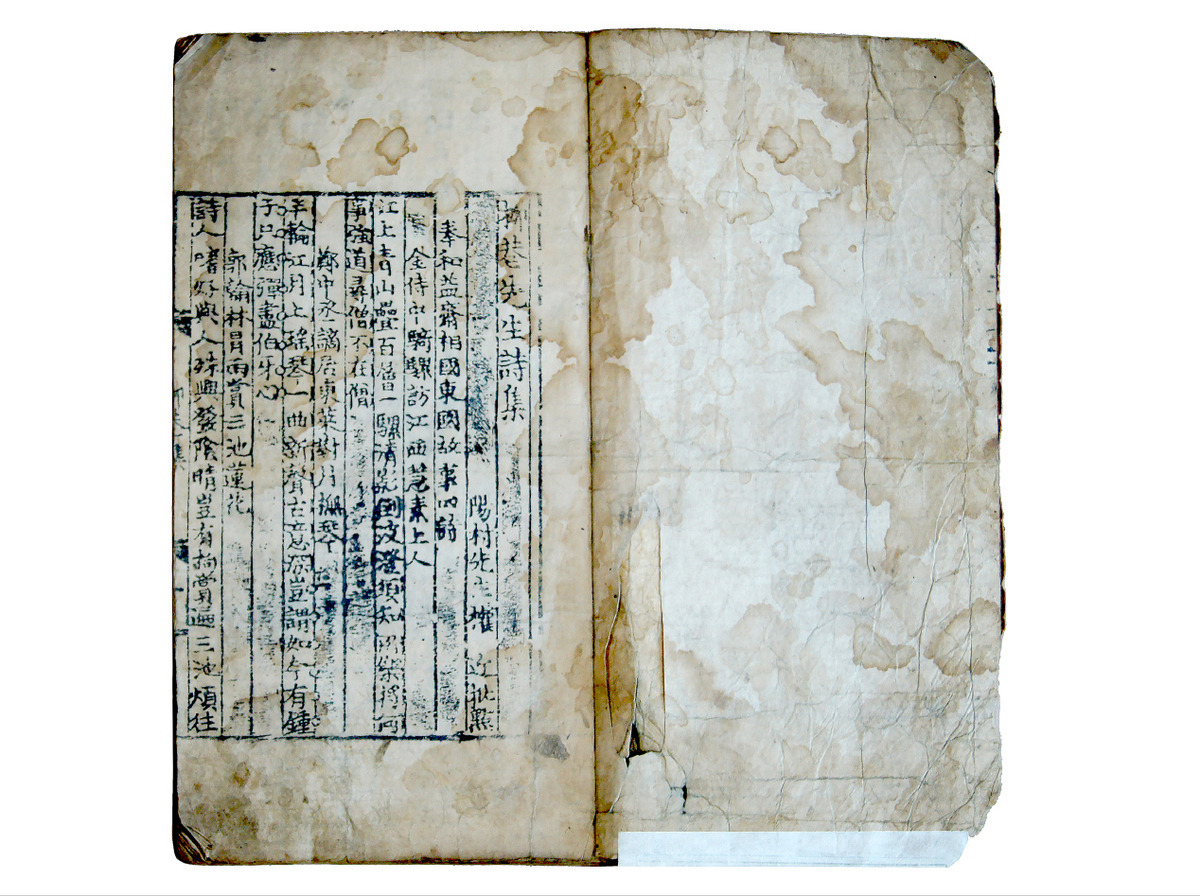 柳巷先生詩集
陽村先生權 近批點
奉和益齋相國東國故事四
金侍中騎騾訪江西惠素上人
江上青山疊百層一騾清波澄須知行樂將何
事強道尋僧不在僧
鄭中丞謫居東萊對月撫琴
半輪江月上瑤琴一曲新聲古意深豈謂如今有鍾
子只應彈盡伯牙心
郭翰林冒雨賞三池蓮花
詩人嗜好與人殊興發陰晴豈有拘賞遍三池煩往